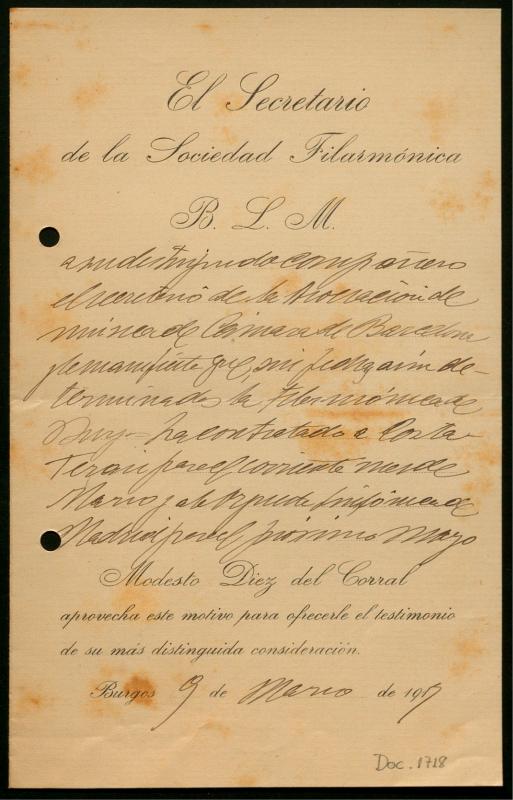 El Secretario
de la Sociedad Filarmónica
B. L. M.
a su distinguido compañero
el secretario de la Asociación de
música de Cámara de Barcelona
y le manifiesta que, sin fecha aún de-
terminada, la Filarmónica de
Burgos ha contratado a Costa
Terán para el corriente mes de
Marzo y a la Orquesta Sinfónica de
Madrid para el próximo Mayo
Modesto Diez del Corral
aprovecha este motivo para ofrecerle el testimonio
de su más distinguida consideración.
Burgos 9 de Marzo de 1917
Doc. 1718